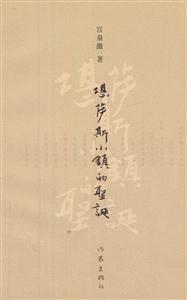 宫泉激 著
堪萨斯小鎮的聖誕
作家出版社